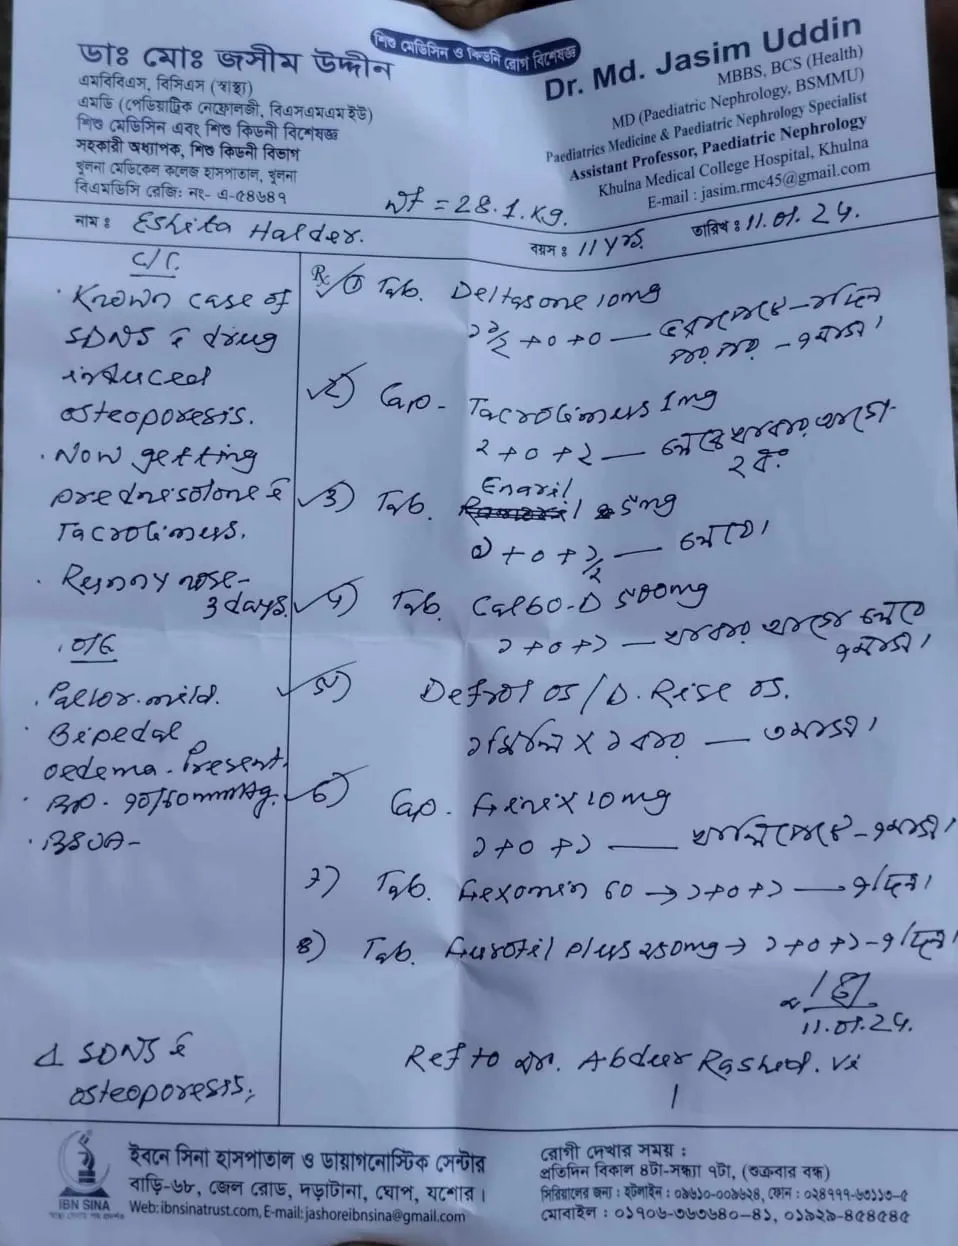 শিশু মেডিসিন ও কিডনি রোগ বিশেষজ্ঞ
ডাঃ মোঃ জসীম উদ্দীন
এমবিবিএস, বিসিএস (স্বাস্থ্য)
এমডি (পেডিয়াট্রিক নেফ্রোলজী, বিএসএমএমইউ)
শিশু মেডিসিন এবং শিশু কিডনী বিশেষজ্ঞ
সহকারী অধ্যাপক, শিশু কিডনী বিভাগ
খুলনা মেডিকেল কলেজ হাসপাতাল, খুলনা
বিএমডিসি রেজি: নং- এ-৫৪৬৪৭
Dr. Md. Jasim Uddin
MBBS, BCS (Health)
MD (Paediatric Nephrology, BSMMU)
Paediatrics Medicine & Paediatric Nephrology Specialist
Assistant Professor, Paediatric Nephrology
Khulna Medical College Hospital, Khulna
E-mail : jasim.rmc45@gmail.com
Wt = 28.1.Kg.
নাম : Eshita Halder.
বয়স : 11 yrs.
তারিখ : 11.01.24.
C/C.
Known case of
SDNS c̄ drug
induced
osteoporesis.
Now getting
prednisolone c̄
Tacrolimus.
Runny nose-
3 days.
O/E
Pallor. mild.
Bipedal
oedema. Present.
BP- 90/60mmHg.
BSUA-
Δ SDNS c̄
osteoporesis,
Rx 1) Tab. Deltasone 10mg
২ ১/২ + ০ + ০ —
2) Cap- Tacrolimus 1mg
২ + ০ + ২ —
3) Tab. Enaril 5mg
+ ০ + ১/২ —
4) Tab. Calbo-D 500mg
১ + ০ + ১ — খাবার
5) Defrol os / D. Rise os.
১ × ১ বার —
6) Cap. Finix 10mg
১ + ০ + ১ —
7) Tab. Fexomin 60 → ১+০+১ — ৭ দিন।
8) Tab. Furotil plus 250mg → ১+০+১-৭ দিন
11.01.24.
Ref to Dr. Abdur Rashed.
IBN SINA
ইবনে সিনা হাসপাতাল ও ডায়াগনোস্টিক সেন্টার
বাড়ি-৬৮, জেল রোড, দড়াটানা, ঘোপ, যশোর।
Web:ibnsinatrust.com, E-mail:jashoreibnsina@gmail.com
রোগী দেখার সময় :
প্রতিদিন বিকাল ৪টা-সন্ধ্যা ৭টা, (শুক্রবার বন্ধ)
সিরিয়ালের জন্য : হটলাইন : ০৯৬১০-০০৯৬২৪, ফোন : ০২৪৭৭৭-৬৩১১৩-৫
মোবাইল : ০১৭০৬-৩৬৩৬৪০-৪১, ০১৯২৯-৪৫৪৫৪৫